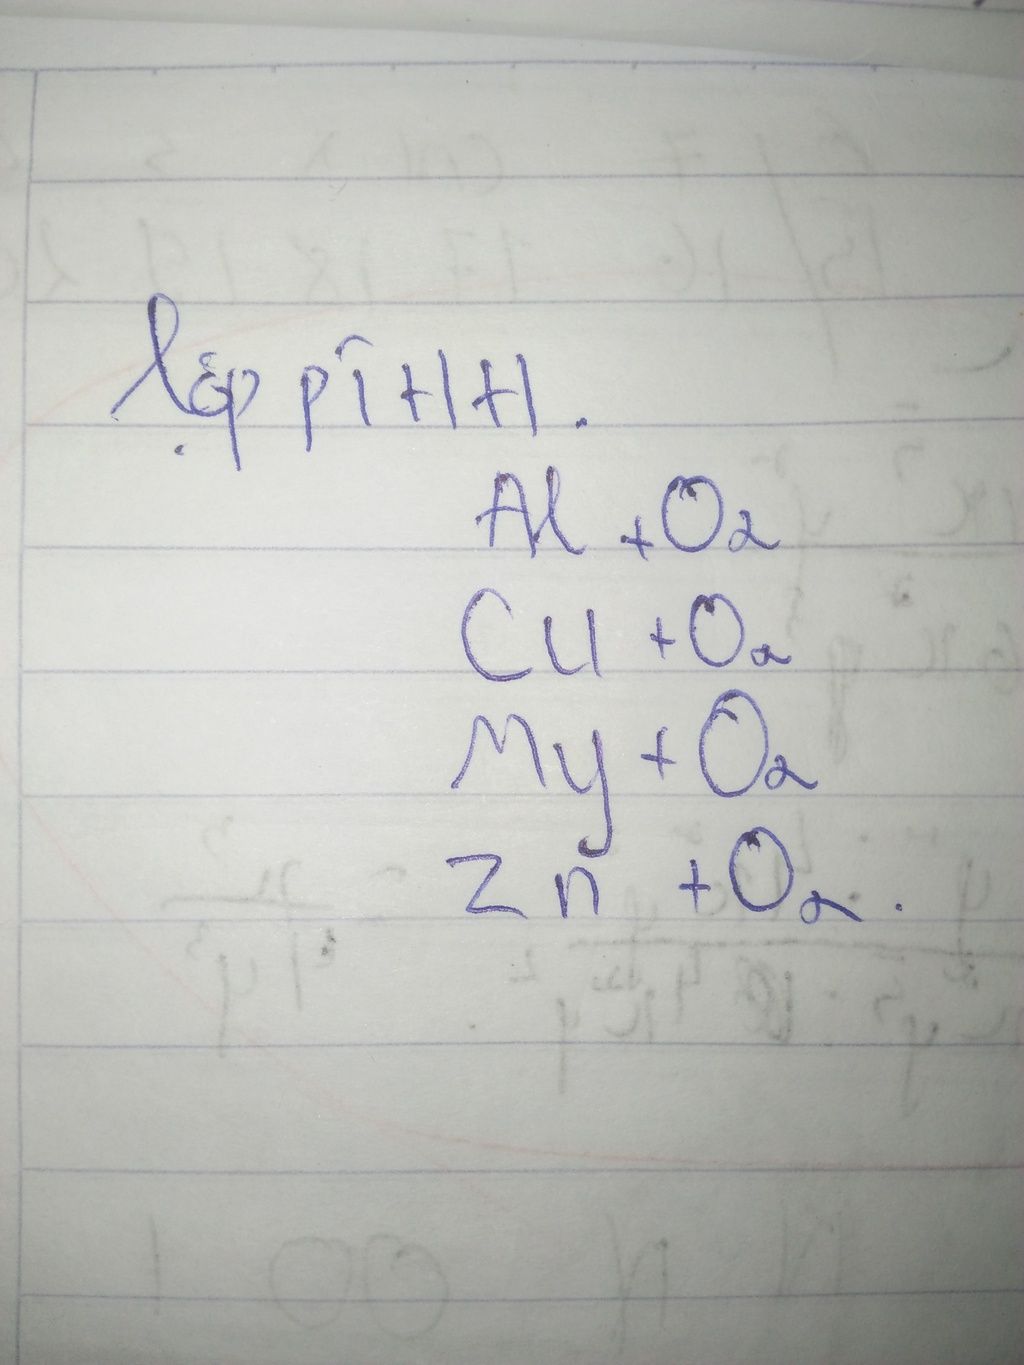 Lập pTHH.
Al + O2
Cu + O2
Mg + O2
Zn + O2.